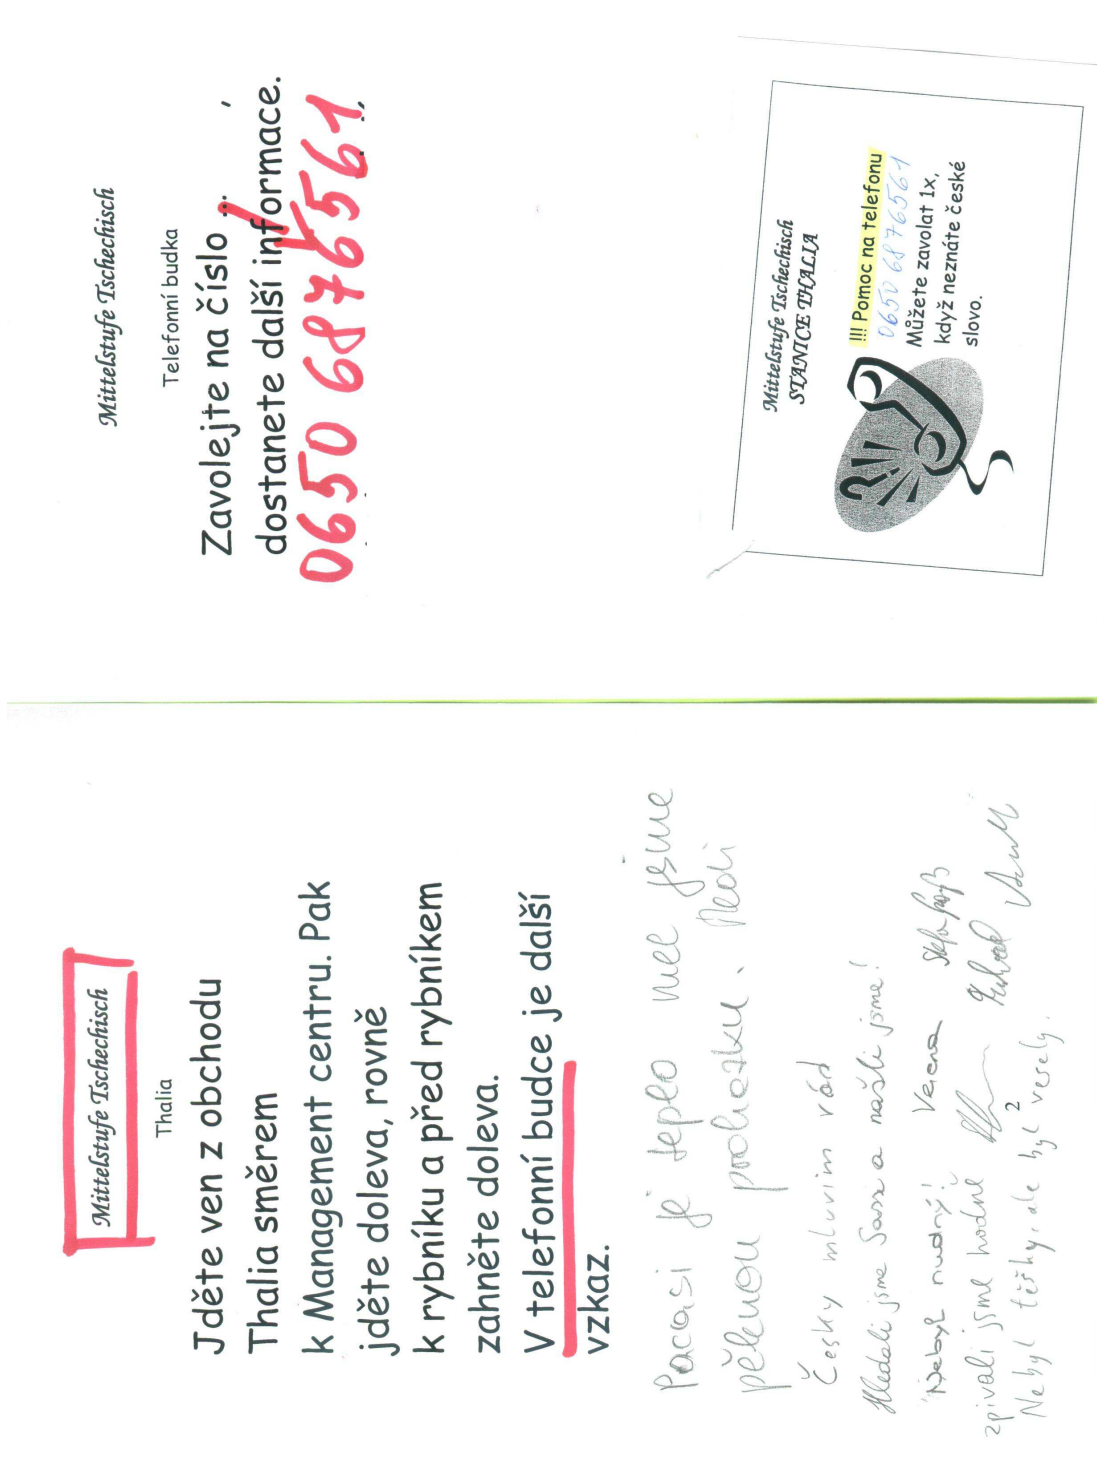 Mittelstufe Tschechisch
Thalia
Jděte ven z obchodu
Thalia směrem
k Management centru. Pak
jděte doleva, rovně
k rybníku a před rybníkem
zahněte doleva.
V telefonní budce je další
vzkaz.
je teplo mel jsme
pěknou prohazku.
Česky mluvim rád
Hledali jsme a našli jsme!
Nebyl nudný! Verena
zpivali jsme hodně
Nebyl těžky, ale byl 2 vesely.
Mittelstufe Tschechisch
Telefonní budka
Zavolejte na číslo ...,
dostanete další informace.
0650 6876561
Mittelstufe Tschechisch
STANICE THALIA
!!! Pomoc na telefonu
0650 6876561
Můžete zavolat 1x,
když neznáte české
slovo.